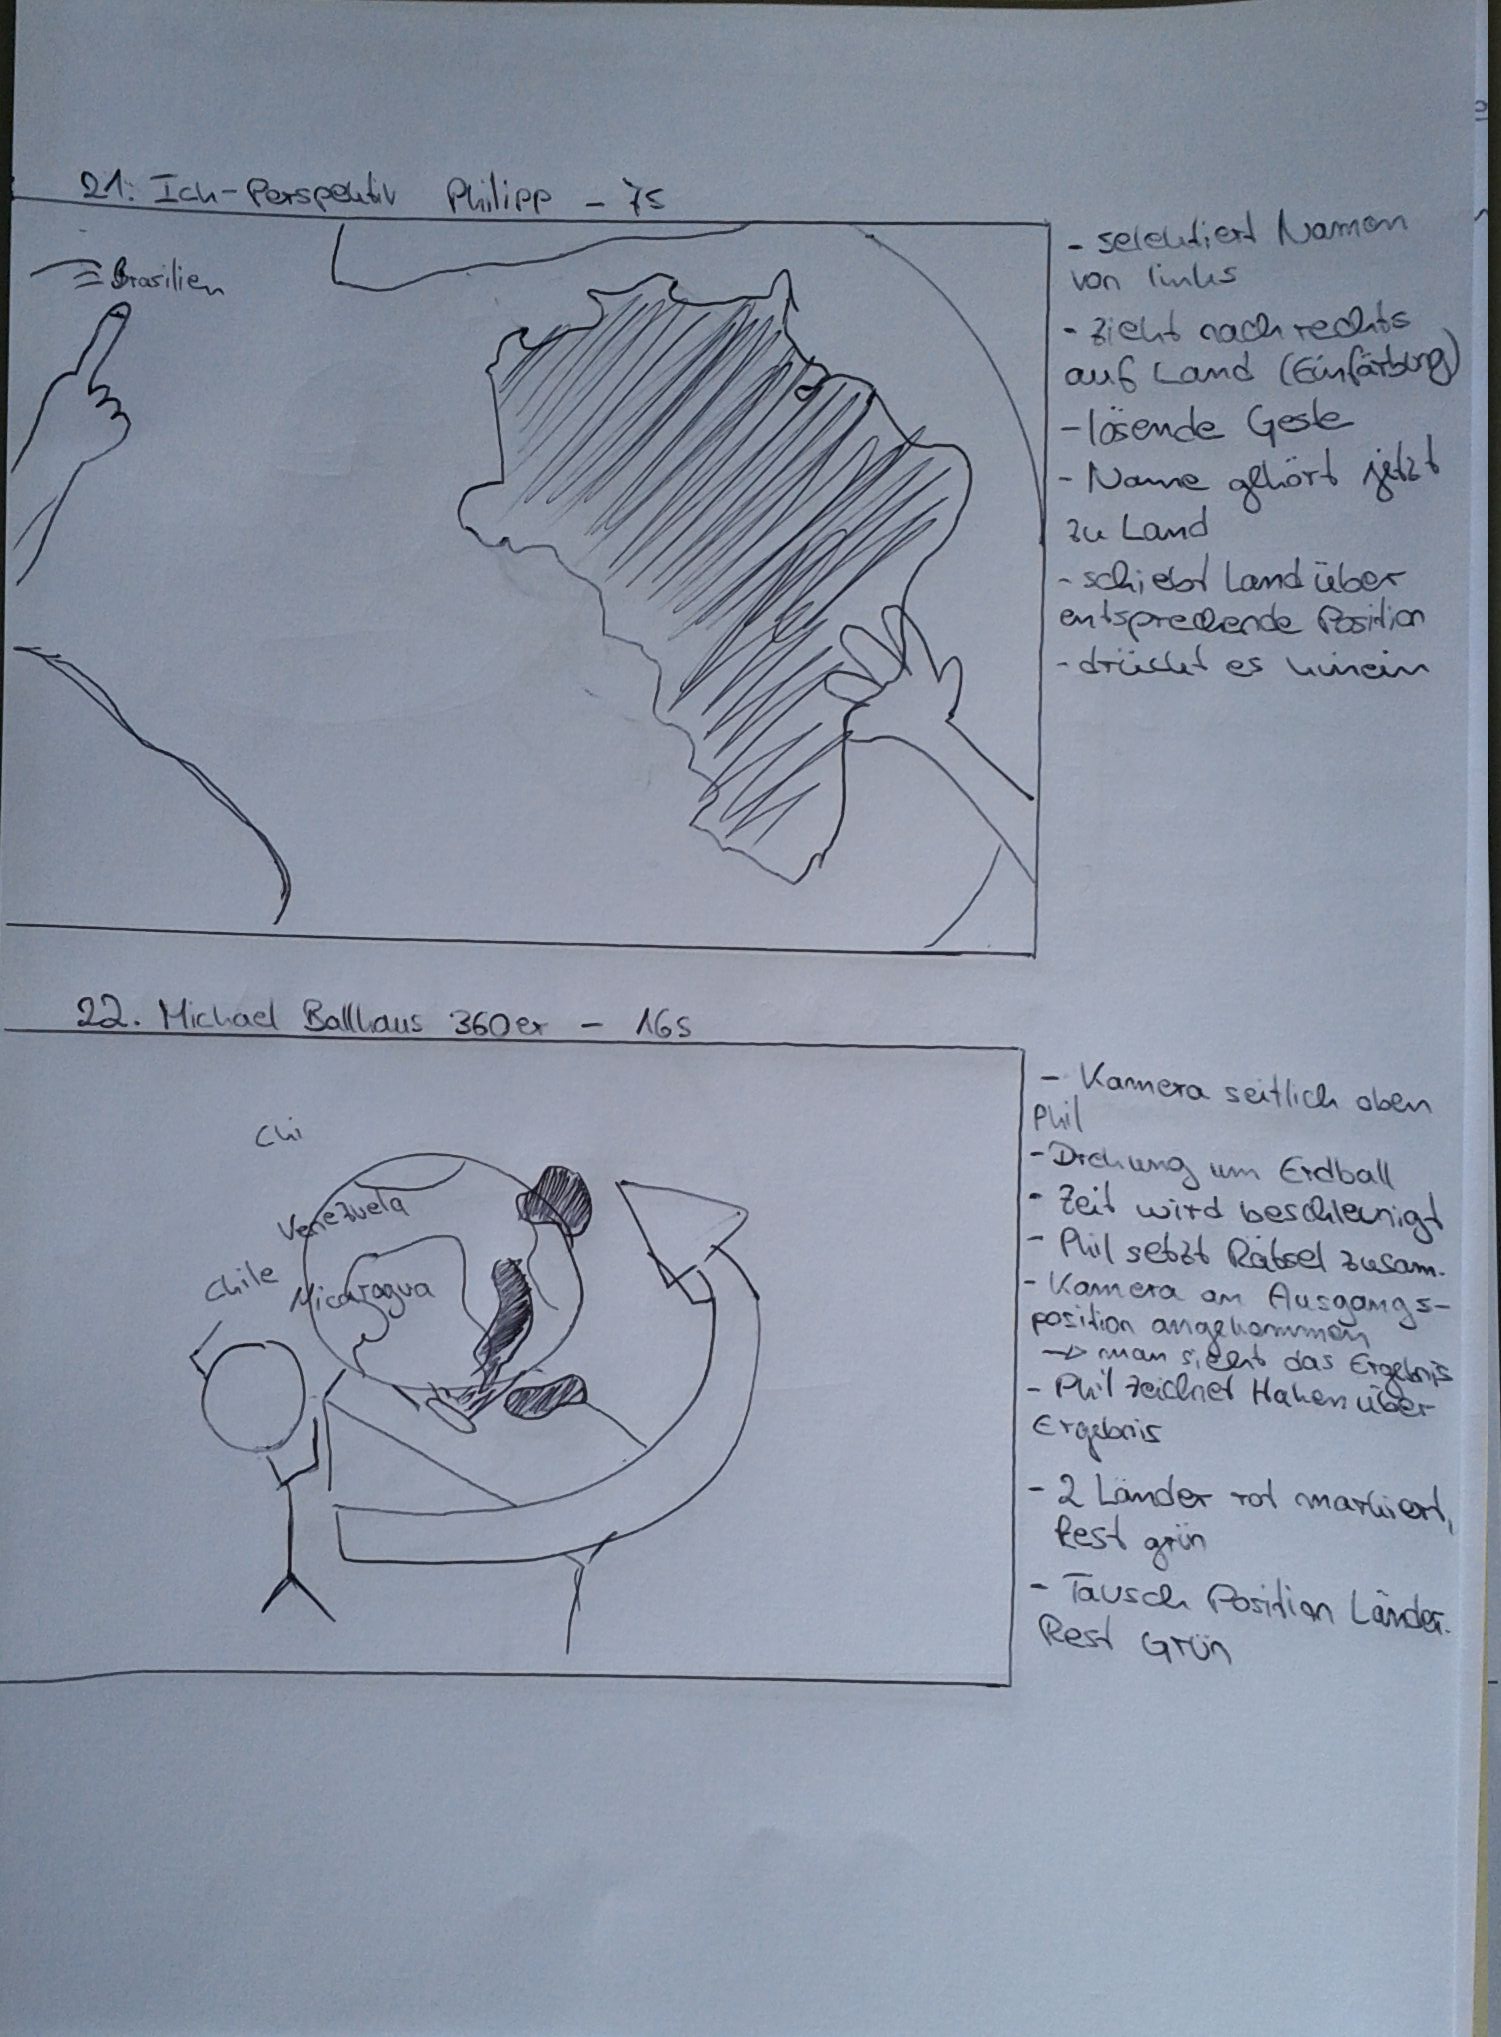 21. Ich-Perspektiv Philipp - 7s
Brasilien
- selektiert Namen
von links
- zieht nach rechts
auf Land (Einfärbung)
- lösende Geste
- Name gehört jetzt
zu Land
- schiebt Land über
entsprechende Position
- drückt es hinein
22. Michael Ballhaus 360er - 16s
Chi
Venezuela
Chile
Nicaragua
- Kamera seitlich oben
Phil
- Drehung um Erdball
- Zeit wird beschleunigt
- Phil setzt Rätsel zusam.
- Kamera an Ausgangs-
position angekommen
-> man sieht das Ergebnis
- Phil zeichnet Haken über
Ergebnis
- 2 Länder rot markiert,
Rest grün
- Tausch Position Länder.
Rest Grün